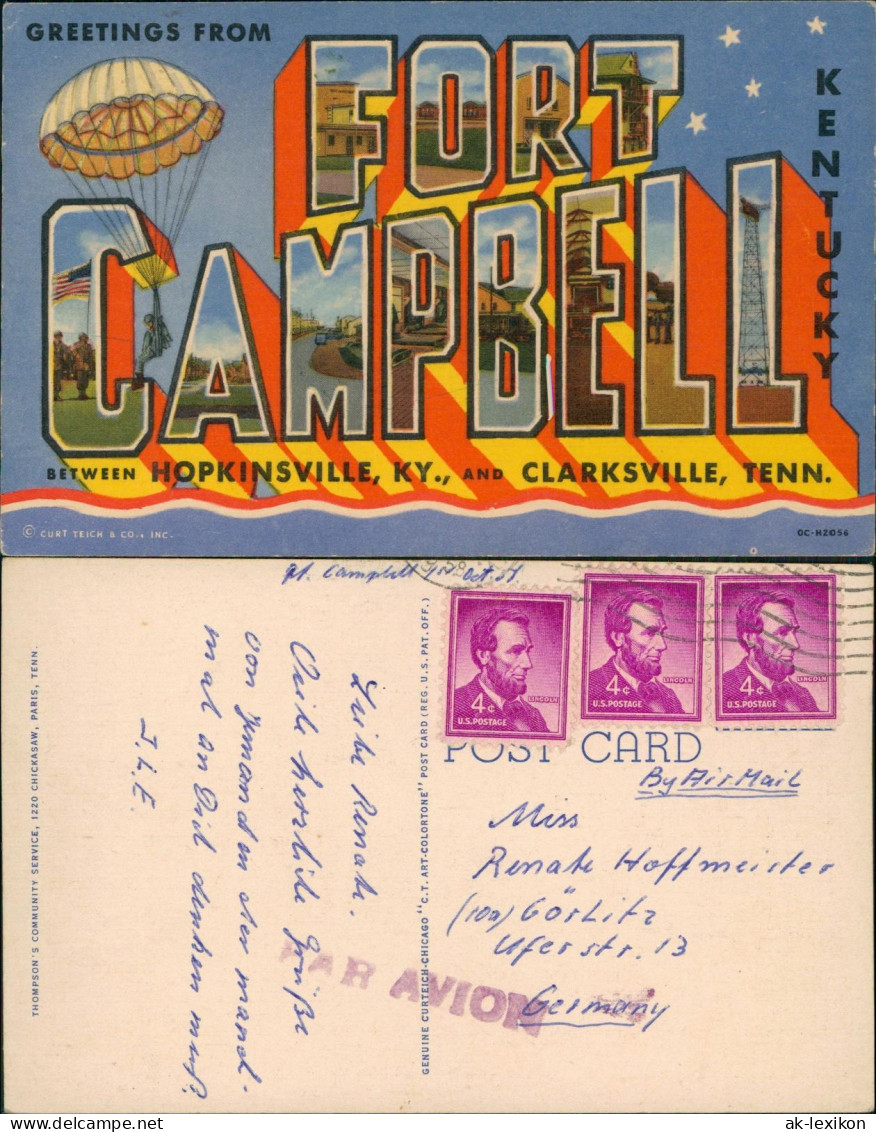 GREETINGS FROM
FORT
CAMPBELL
KENTUCKY
BETWEEN HOPKINSVILLE, KY., AND CLARKSVILLE, TENN.
© CURT TEICH & CO., INC.
OC-H2056
Ft. Campbell 1st Oct.
Liebe Renate.
Viele herzliche Grüße
von Jemandem der manch-
mal an Dich denken muß.
THOMPSON'S COMMUNITY SERVICE, 1220 CHICKASAW, PARIS, TENN.
GENUINE CURTEICH-CHICAGO "C.T. ART-COLORTONE" POST CARD (REG. U.S. PAT. OFF.)
4¢
LINCOLN
U.S. POSTAGE
4¢
LINCOLN
U.S. POSTAGE
4¢
LINCOLN
U.S. POSTAGE
POST CARD
By Air Mail
Miss
Renate Hoffmeister
(10a) Görlitz
Uferstr. 13
Germany
PAR AVION
www.delcampe.net
ak-lexikon